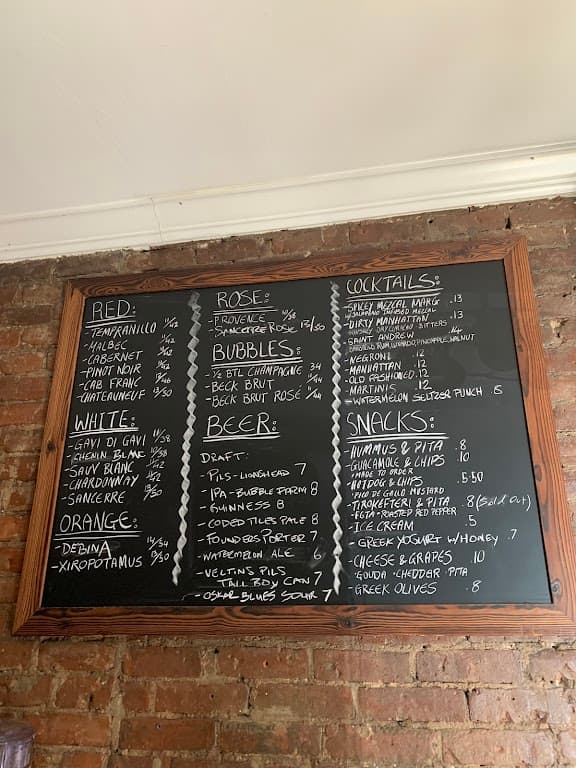 RED:
- TEMPRANILLO 11/42
- MALBEC 11/42
- CABERNET 11/42
- PINOT NOIR 11/42
- CAB FRANC 12/46
- CHATEAUNEUF 13/50
WHITE:
- GAVI DI GAVI 10/38
- CHENIN BLANC 10/38
- SAUV BLANC 11/42
- CHARDONNAY 11/42
- SANCERRE 13/50
ORANGE:
- DEBINA 14/54
- XIROPOTAMUS 13/50
ROSE:
- PROVENCE 10/38
- SANCERRE ROSE 13/50
BUBBLES:
- ½ BTL CHAMPAGNE 34
- BECK BRUT 11/44
- BECK BRUT ROSÉ 11/44
BEER:
DRAFT:
- PILS - LIONSHEAD 7
- IPA - BUBBLE FARM 8
- GUINNESS 8
- CODED TILES PALE 8
- FOUNDERS PORTER 7
- WATERMELON ALE 6
- VELTINS PILS
TALL BOY CAN 7
- OSKAR BLUES SOUR 7
COCKTAILS:
- SPICEY MEZCAL MARG .13
JALAPENO INFUSED MEZCAL
- DIRTY MANHATTAN .13
BITTERS
- SAINT ANDREW .14
PINEAPPLE, WALNUT
- NEGRONI .12
- MANHATTAN .12
- OLD FASHIONED .12
- MARTINIS .12
- WATERMELON SELTZER PUNCH .8
SNACKS:
- HUMMUS & PITA .8
- GUACAMOLE & CHIPS .10
- MADE TO ORDER
- HOTDOG & CHIPS .5.50
- PICO DE GALLO MUSTARD
- TIROKEFTERI & PITA .8 (Sold Out)
- FETA - ROASTED RED PEPPER
- ICE CREAM .5
- GREEK YOGURT W/HONEY .7
- CHEESE & GRAPES .10
GOUDA - CHEDDER - PITA
- GREEK OLIVES .8